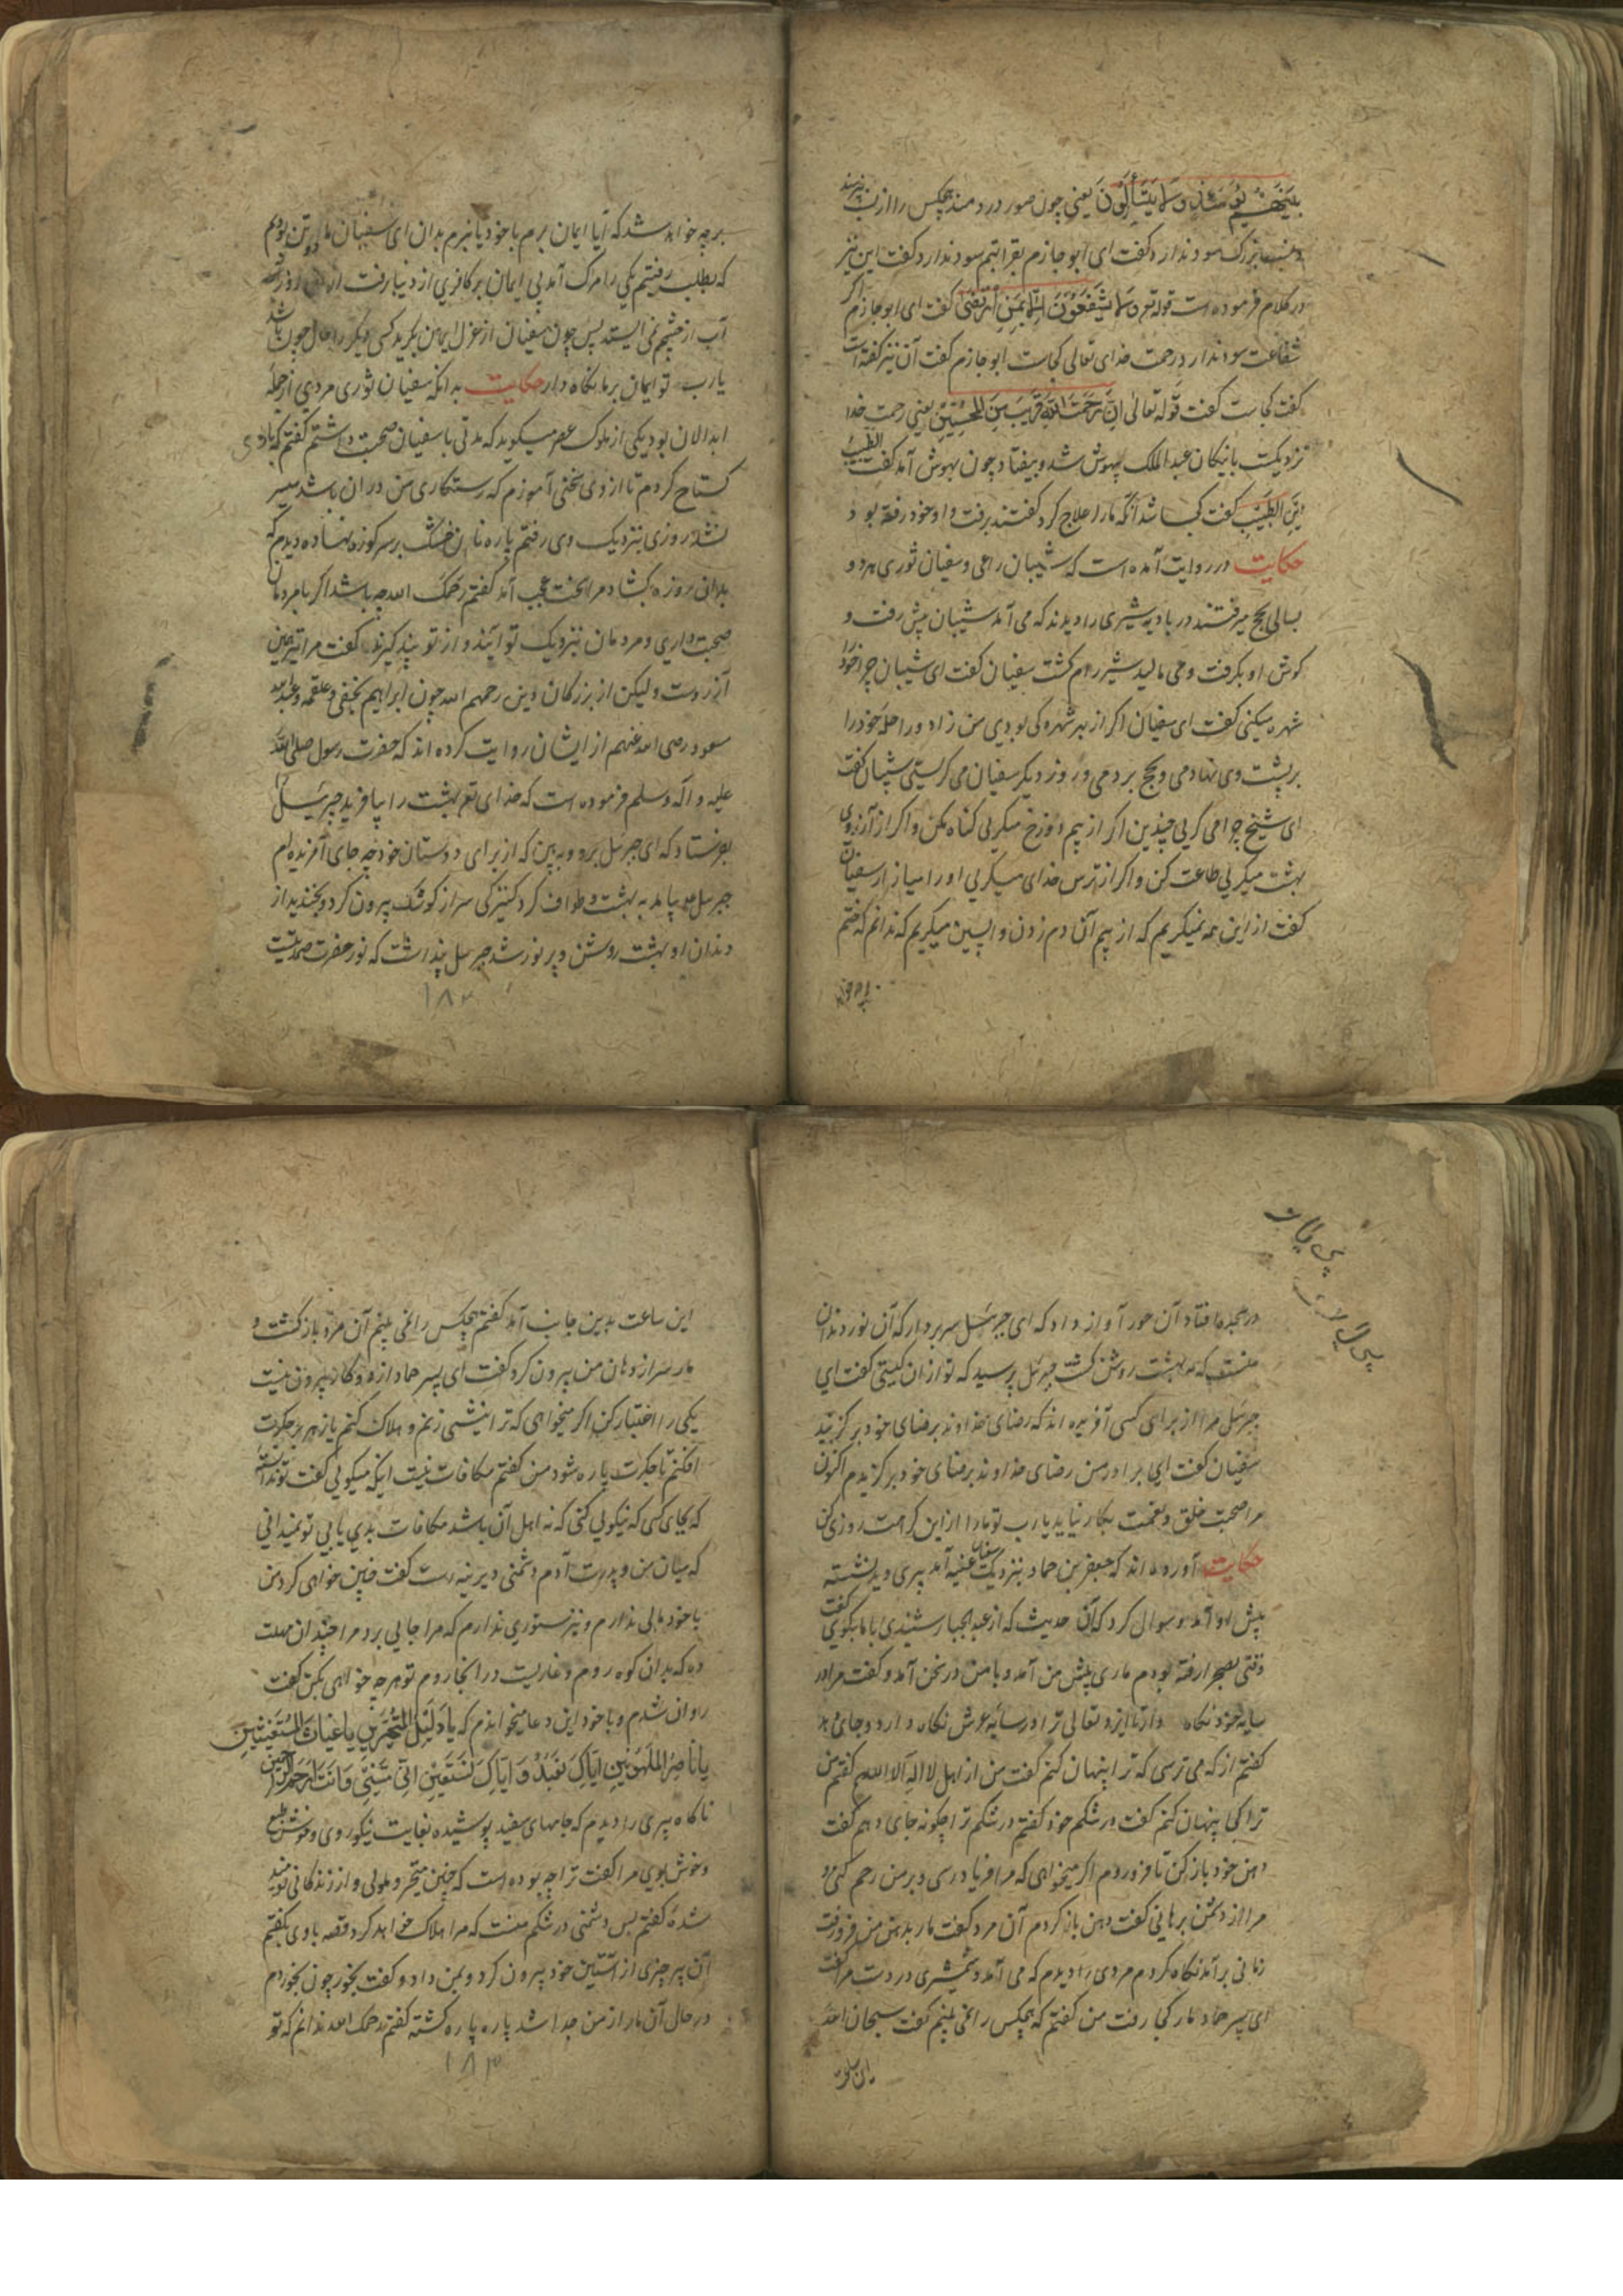 بَینَهُم یَومَئِذٍ وَلا یَتَسَاءَلُونَ یعنی چون صور در دمند هیچکس را از نسب
و نسب بزرگ سود ندارد گفت ای ابو حازم بقرابتم سود ندارد گفت این نیز
در کلام فرموده است قوله تع وَلا یَشفَعُونَ اِلّا لِمَنِ ارتَضٰی گفت ای ابو حازم اگر
شفاعت سود ندارد رحمت خدای تعالی کجاست ابو حازم گفت آن نیز گفته است
گفت کجاست گفت قوله تعالی اِنَّ رَحمَتَ اللهِ قَرِیبٌ مِنَ المُحسِنِینَ یعنی رحمت خدا
نزدیکست بانیکان عبد الملک بیهوش شد و بیفتاد چون بهوش آمد گفت
این الطبیب گفت کجا شد آنکه ما را علاج کرد گفتند برفت و او خود رفته بود
حکایت در روایت آمده است که شیبان راعی و سفیان ثوری هر دو
بسالی بحج میرفتند در بادیه شیری را دیدند که می آمد شیبان پیش رفت و
گوش او بگرفت و می مالید شیر رام گشت سفیان گفت ای شیبان چرا خود را
شهره میکنی گفت ای سفیان اگر از بهر شهره گی بودی من زاد و راحله خود را
بر پشت وی نهادمی و بحج بردمی و روز دیگر سفیان می گریستی شیبان گفت
ای شیخ چرا می گریی چندین اگر از بیم دوزخ میگریی گناه مکن و اگر از آرزوی
بهشت میگریی طاعت کن و اگر از ترس خدای میگریی او را میازار سفیان
گفت از این همه نمیگریم که از بیم آن دم زدن واپسین میگریم که ندانم که ختم
برچه خواهد شد که آیا ایمان برم با خود یا نبرم بدان ای سفیان ما دو تن بودیم
که بطلب رفتیم یکی را مرگ آمد بی ایمان بر کافری از دنیا رفت از آن روز
آب از چشمم نمی ایستد پس چون سفیان از عزل ایمان بگرید کسی دیگر را حال چون باشد
یارب تو ایمان بر ما نگاه دار حکایت بدانکه سفیان ثوری مردی از جمله
ابدالان بود یکی از ملوک عصر میگوید که مدتی با سفیان صحبت داشتم گفتم که با وی
گستاخ کردم تا از وی سخنی آموزم که رستگاری من در آن باشد میسر
نشد روزی بنزدیک وی رفتم پاره نان خشک بر سر کوزه نهاده دیدم که
بدانی روزه گشاد مرا سخت عجب آمد گفتم رحمک الله چه باشد اگر با مردمان
صحبت داری و مردمان بنزدیک تو آیند و از تو پند گیرند گفت مرا نیز همین
آرزوست ولیکن از بزرگان دین رحمهم الله چون ابراهیم نخعی و علقمه و عبد الله
مسعود رضی الله عنهم از ایشان روایت کرده اند که حضرت رسول صلی الله
علیه و آله و سلم فرموده است که خدای تع بهشت را بیافرید جبرئیل را
بفرستاد که ای جبرئیل برو و ببین که از برای دوستان خود چه جای آفریده ام
جبرئیل بیامد به بهشت و طواف کرد کنیزکی سر از کوشک بیرون کرد و بخندید از
دندان او بهشت روشن و پر نور شد جبرئیل پنداشت که نور حضرت صمدیت
۱۸۲
در سجده افتاد آن حور آواز داد که ای جبرئیل سر بردار که آن نور دندان
منست که بهشت روشن گشت جبرئیل پرسید که تو از آن کیستی گفت ای
جبرئیل مرا از برای کسی آفریده اند که رضای خداوند بر رضای خود برگزیند
سفیان گفت ای برادر من رضای خداوند بر رضای خود برگزیدم اکنون
مرا صحبت خلق و نعمت بکار نیاید یارب تو ما را از این کرامت روزی کن
حکایت آورده اند که جعفر بن حماد بنزدیک سفیان عیینه آمد پیری دید نشسته
پیش او آمد و سوال کرد که آن حدیث که از عبد الجبار شنیدی با ما بگوی گفت
وقتی بصحرا رفته بودم ماری پیش من آمد و با من در سخن آمد و گفت مرا در
سایه خود نگاه دار تا ایزد تعالی ترا در سایه عرش نگاه دارد و جای دهد
گفتم از که می ترسی که ترا پنهان کنم گفت من از اهل لا اله الا الله ام گفتم من
ترا کجا پنهان کنم گفت در شکم خود گفتم در شکم ترا چگونه جای دهم گفت
دهن خود باز کن تا فرو روم اگر میخواهی که مرا فریاد رسی و بر من رحم کنی و
مرا از دشمن برهانی گفت دهن باز کردم آن مرد گفت مار بدهن من فرو رفت
زمانی برآمد نگاه کردم مردی را دیدم که می آمد و شمشیری در دست مرا گفت
ای پسر حماد مار کجا رفت من گفتم که هیچکس را نمی بینم گفت سبحان الله
این ساعت
این ساعت بدین جانب آمد گفتم هیچکس را نمی بینم آن مرد باز گشت و
مار سر از دهان من بیرون کرد گفت ای پسر حماد از دو کار بیرون نیست
یکی را اختیار کن اگر میخواهی که ترا نیشی زنم و هلاک کنم یا زهر بر جگرت
افکنم تا جگرت پاره شود من گفتم مکافات نیست اینکه میگویی گفت تو ندانسته
که بجای کسی که نیکویی کنی که نه اهل آن باشد مکافات بدی یابی تو نمیدانی
که میان من و پدرت آدم دشمنی دیرینه است گفت چنین خواهی کرد من
با خود مالی ندارم و نیز ستوری ندارم که مرا جایی برد مرا چندان مهلت
ده که بدان کوه روم و عاریت در انجا روم تو هر چه خواهی بکن گفت
روان شدم و با خود این دعا میخواندم که یا دَلِیلَ المُتَحَیِّرِینَ یا غِیاثَ المُستَغِیثِینَ
یا ناصِرَ المَلهُوفِینَ اِیّاکَ نَعبُدُ وَ اِیّاکَ نَستَعِینُ اِنّی مَسَّنِیَ وَ اَنتَ اَرحَمُ الرّاحِمِینَ
ناگاه پیری را دیدم که جامهای سفید پوشیده بغایت نیکو روی و خوش طبع
و خوش بوی مرا گفت ترا چه بوده است که چنین متحیر و ملولی و از زندگانی نومید
شده گفتم بس دشمنی در شکم منست که مرا هلاک خواهد کرد و قصه با وی بگفتم
آن پیر چیزی از آستین خود بیرون کرد و بمن داد و گفت بخور چون بخوردم
در حال آن مار از من جدا شد پاره پاره گشته گفتم رحمک الله ندانم که تو
۱۸۳